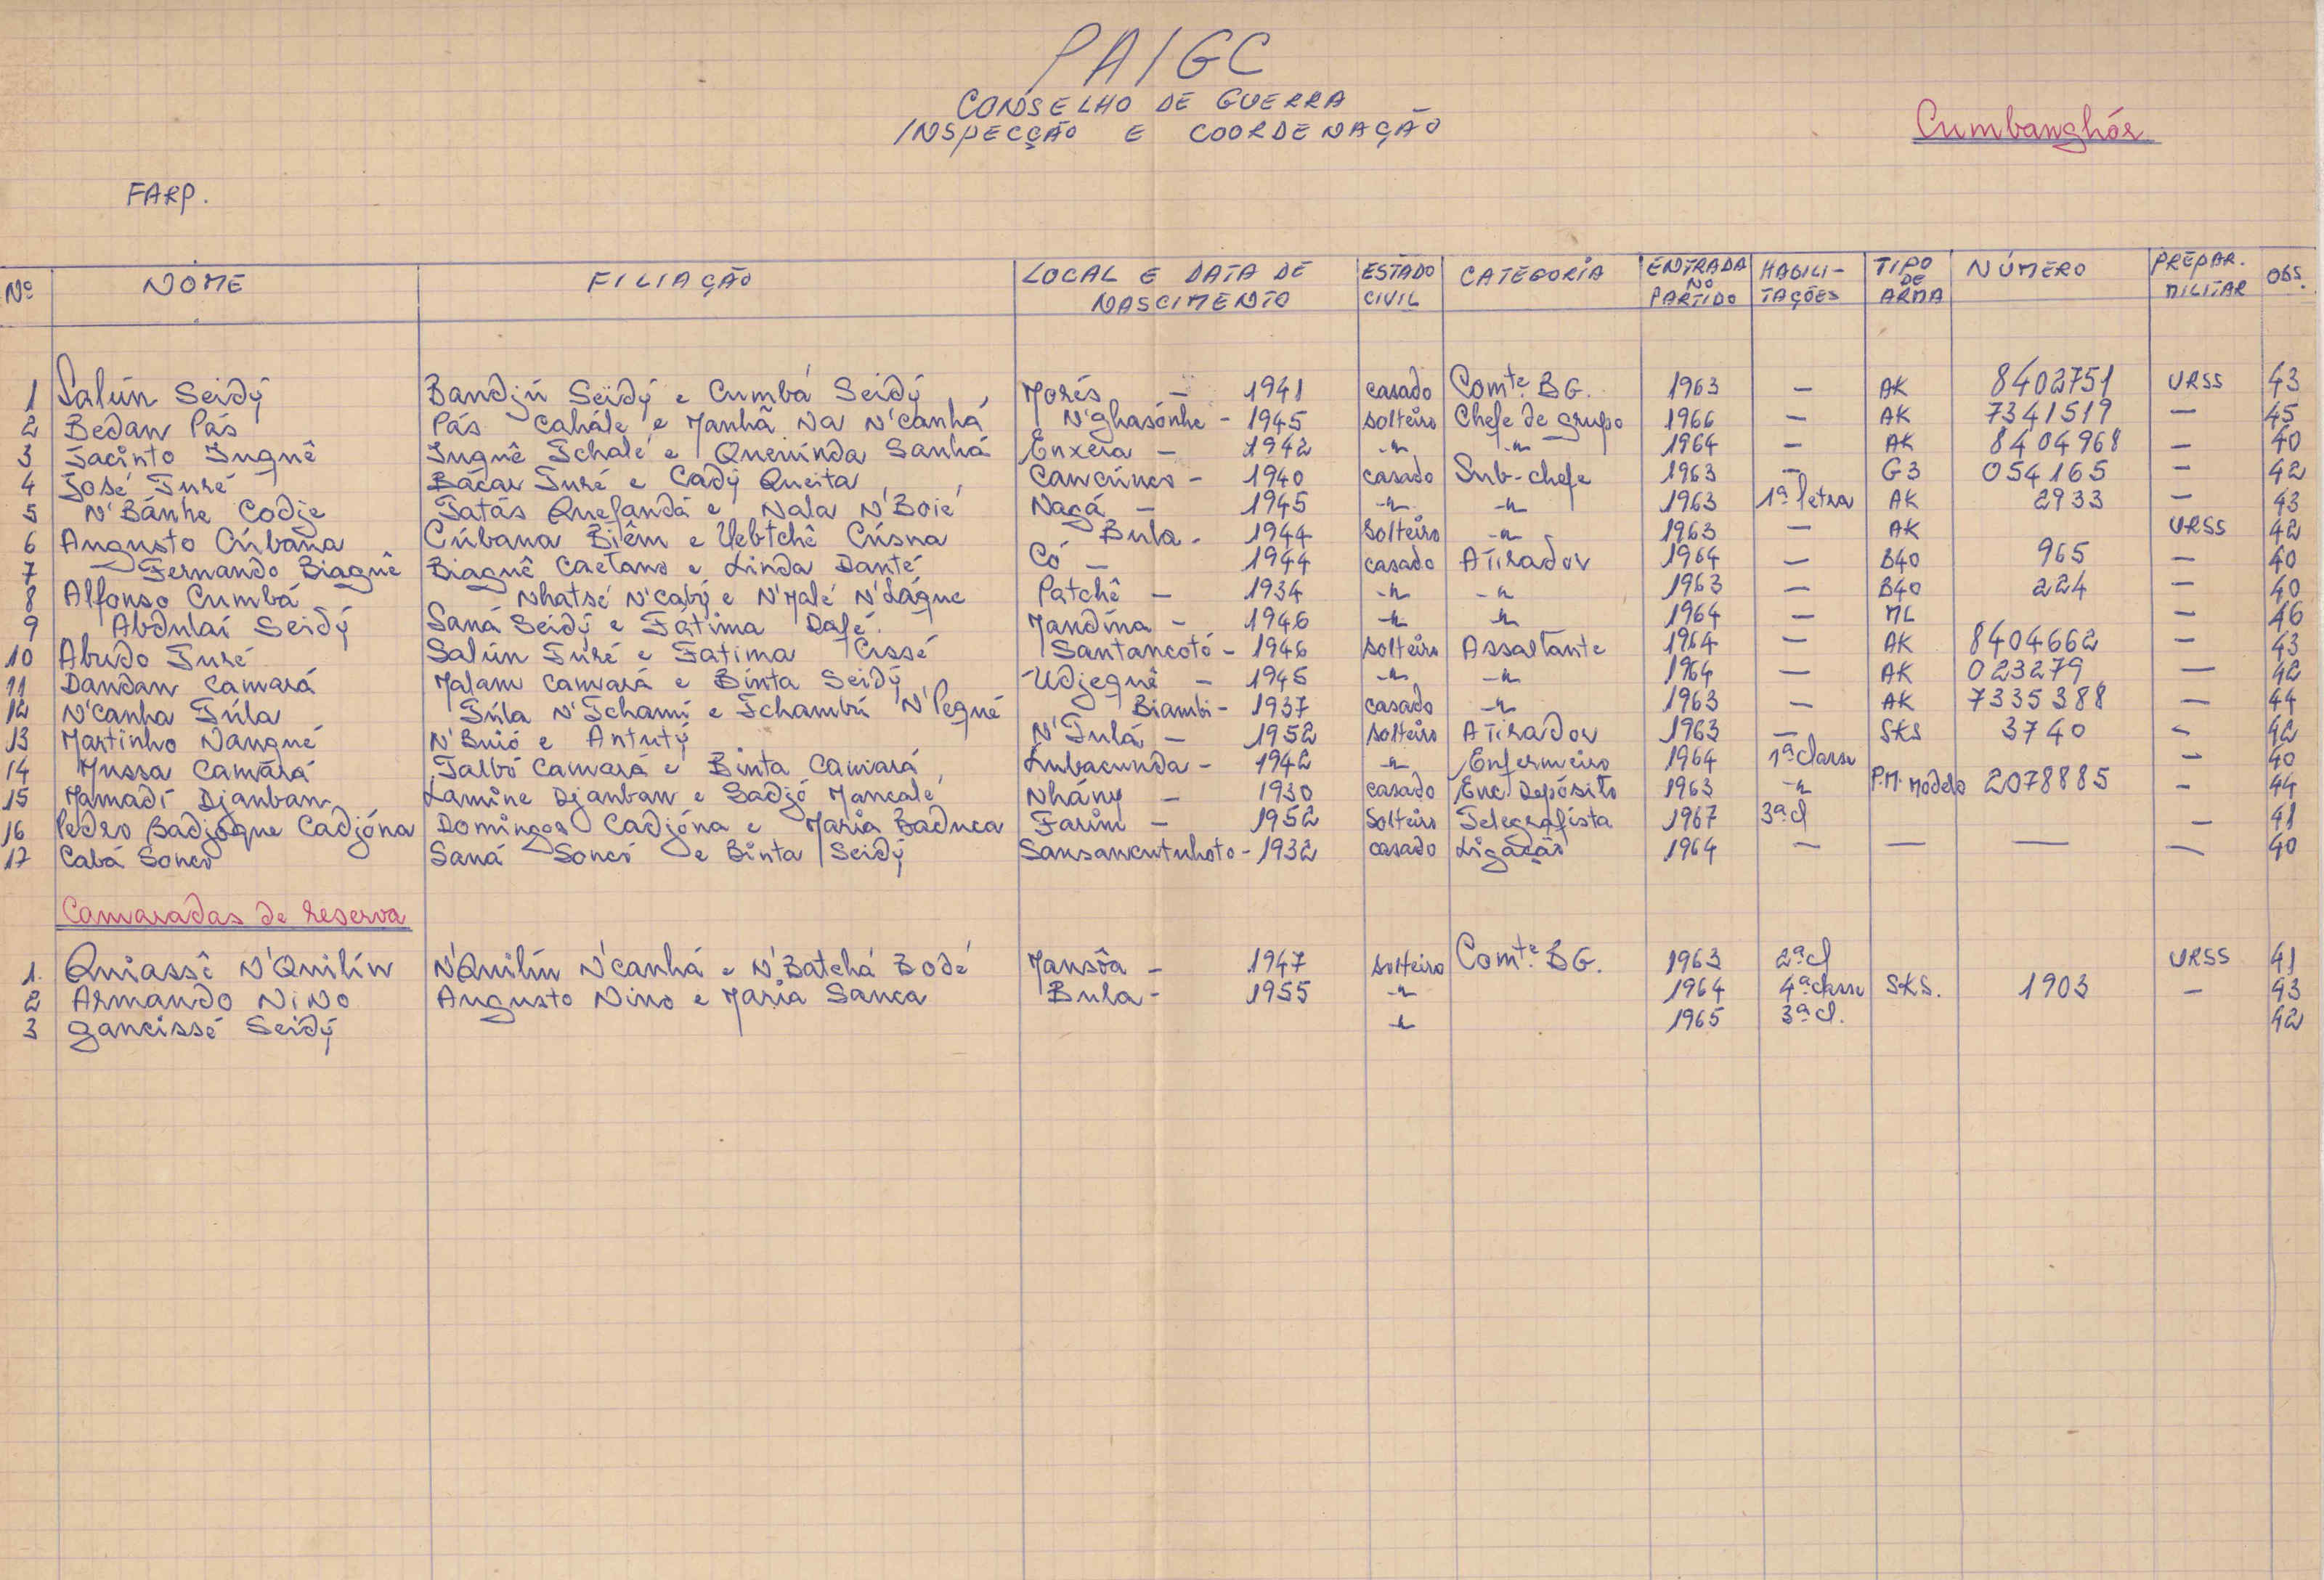 PAIGC
CONSELHO DE GUERRA
INSPECÇÃO E COORDENAÇÃO
Cumbanghór
FARP.
Nº NOME FILIAÇÃO LOCAL E DATA DE NASCIMENTO ESTADO CIVIL CATEGORIA ENTRADA NO PARTIDO HABILI-TAÇÕES TIPO DE ARMA NÚMERO PREPAR. MILITAR OBS.
1 Salún Seidý Bandjú Seidý e Cumbá Seidý Morés - 1941 casado Comte. BG. 1963 - AK 8402751 URSS 43
2 Bedan Pás Pás Cahále e Manhã Na N'canhá N'ghasónhe - 1945 solteiro Chefe de grupo 1966 - AK 7341519 - 45
3 Jacinto Inguê Inguê Tchalé e Quenínda Sanhá Enxeia - 1942 -"- -"- 1964 - AK 8404968 - 40
4 José Turé Bácar Turé e Cadý Queita Cancúnco - 1940 casado Sub-chefe 1963 - G3 054165 - 42
5 N'Bánhe Codje Tatás Quefandá e Nala N'Boié Nagá - 1945 -"- -"- 1963 1ª letra AK 2933 - 43
6 Augusto Cúbana Cúbana Biêm e Uebtchê Cúsna Bula - 1944 solteiro -"- 1963 - AK URSS 42
7 Fernando Biaguê Biaguê Caetano e Linda Danté Có - 1944 casado Atirador 1964 - B40 965 - 40
8 Alfonso Cumbá Nhatsé N'cabý e N'Malé N'Lágue Patchê - 1934 -"- -"- 1963 - B40 224 - 40
9 Abdulai Seidý Saná Seidý e Fátima Dafé Mandína - 1946 -"- -"- 1964 - ML - 46
10 Abudo Turé Salún Turé e Fatima Cissé Santancotó - 1946 solteiro Assaltante 1964 - AK 8404662 - 43
11 Dandan Camará Malam Camará e Binta Seidý Udjeguê - 1945 -"- -"- 1964 - AK 023279 - 42
12 N'canha Túla Túla N'Tchamí e Tchambú N'Pegné Biambi - 1937 casado -"- 1963 - AK 7335388 - 44
13 Martinho Nangué N'Buió e Antutý N'Tulá - 1952 solteiro Atirador 1963 - SKS 3740 - 42
14 Mussa Camárá Talbó Camará e Binta Camará Lubacunda - 1942 -"- Enfermeiro 1964 1ª classe - 40
15 Mamadí Djanban Lamine Djanban e Sadjó Mancalé Nhány - 1930 casado Enc. Depósito 1963 -"- P.M. modelo 2078885 - 44
16 Pedro Badjogue Cadjóna Domingos Cadjóna e Maria Badnca Farim - 1952 solteiro Telegrafista 1967 3ª cl - 41
17 Cabá Soncó Saná Soncó e Binta Seidý Sansancutuhoto - 1932 casado Ligáção 1964 - - - - 40
Camaradas de reserva
1. Quiassê N'Quilín N'Quilín N'canhá e N'Batchá Bodé Mansôa - 1947 solteiro Comte. BG. 1963 2ª cl URSS 41
2 Armando NiNo Augusto Nino e Maria Sanca Bula - 1955 -"- 1964 4ª classe SKS. 1903 - 43
3 gancissé Seidý -"- 1965 3ª cl. 42